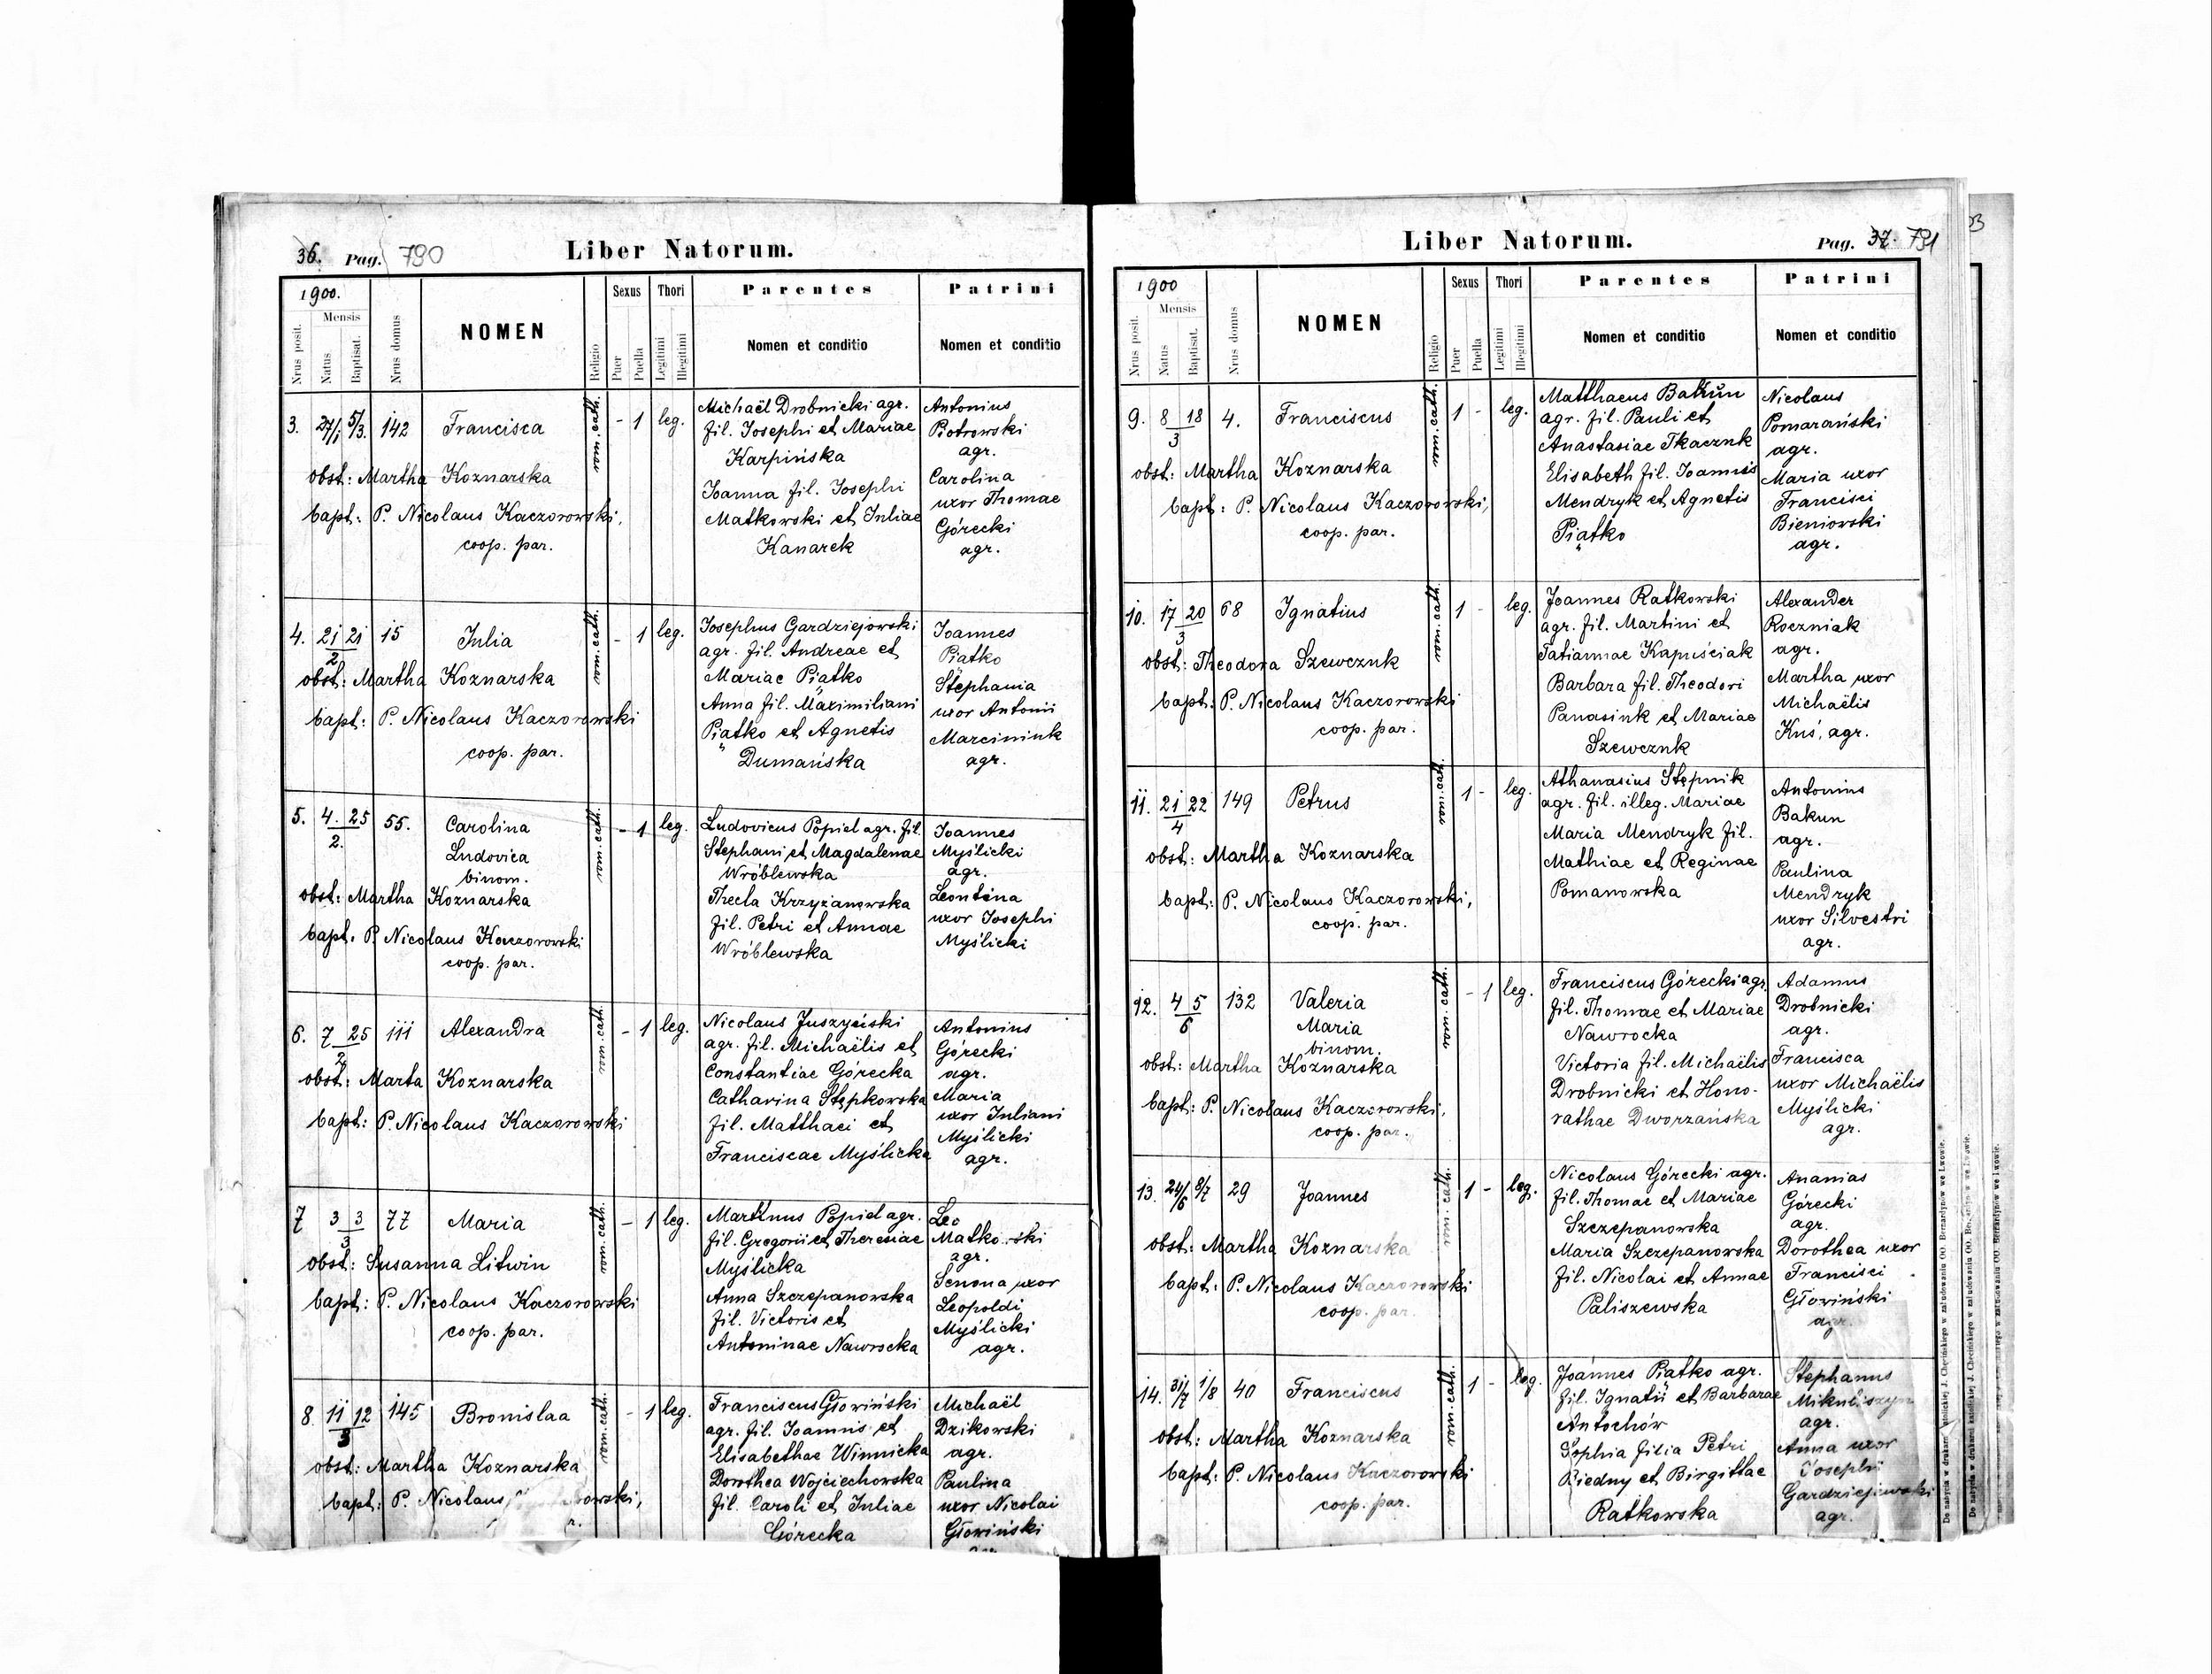 36. Pag. 790
Liber Natorum.
1900.
Nrus posit.
Mensis
Natus
Baptisat.
Nrus domus
NOMEN
Religio
Sexus
Puer
Puella
Thori
Legitimi
Illegitimi
Parentes
Nomen et conditio
Patrini
Nomen et conditio
3. 27/1 5/3. 142 Francisca
obst: Martha Koznarska
bapt: P. Nicolaus Kaczorowski,
coop. par.
rom. cath.
- 1 leg.
Michaël Drobnicki agr.
fil. Josephi et Mariae
Karpińska
Joanna fil. Josephi
Matkowski et Juliae
Kanarek
Antonius
Piotrowski
agr.
Carolina
uxor Thomae
Górecki
agr.
4. 21 21 15 Julia
2
obst: Martha Koznarska
bapt: P. Nicolaus Kaczorowski
coop. par.
rom. cath.
- 1 leg.
Josephus Gardziejowski
agr. fil. Andreae et
Mariae Piątko
Anna fil. Maximiliani
Piątko et Agnetis
Dumańska
Joannes
Piątko
Stephania
uxor Antonii
Marciniuk
agr.
5. 4. 25 55. Carolina
2.
Ludovica
binom.
obst: Martha Koznarska
bapt. P. Nicolaus Kaczorowski
coop. par.
rom. cath.
- 1 leg.
Ludovicus Popiel agr. fil.
Stephani et Magdalenae
Wróblewska
Thecla Krzyżanowska
fil. Petri et Annae
Wróblewska
Joannes
Myślicki
agr.
Leontina
uxor Josephi
Myślicki
6. 7 25 111 Alexandra
2
obst: Marta Koznarska
bapt: P. Nicolaus Kaczorowski
rom. cath.
- 1 leg.
Nicolaus Juszyński
agr. fil. Michaëlis et
Constantiae Górecka
Catharina Stępkowska
fil. Matthaei et
Franciscae Myślicka
Antonius
Górecki
agr.
Maria
uxor Juliani
Myślicki
agr.
7 3 3 77 Maria
3
obst: Susanna Litwin
bapt: P. Nicolaus Kaczorowski
coop. par.
rom. cath.
- 1 leg.
Martinus Popiel agr.
fil. Gregorii et Theresiae
Myślicka
Anna Szczepanowska
fil. Victoris et
Antoninae Nawrocka
Leo
agr.
uxor
Leopoldi
Myślicki
agr.
8. 11 12 145 Bronislaa
3
obst: Martha Koznarska
bapt: P. Nicolaus
rom. cath.
- 1 leg.
Franciscus Głowiński
agr. fil. Joannis et
Elisabethae Winnicka
Dorothea Wojciechowska
fil. Caroli et Juliae
Górecka
Michaël
Dzikowski
agr.
Paulina
uxor Nicolai
Głowiński
Liber Natorum.
Pag. 37. 791
1900
Nrus posit.
Mensis
Natus
Baptisat.
Nrus domus
NOMEN
Religio
Sexus
Puer
Puella
Thori
Legitimi
Illegitimi
Parentes
Nomen et conditio
Patrini
Nomen et conditio
9. 8 18 4. Franciscus
3
obst: Martha Koznarska
bapt: P. Nicolaus Kaczorowski,
coop. par.
rom. cath.
1 - leg.
Matthaeus Bakun
agr. fil. Pauli et
Anastasiae Tkaczuk
Elisabeth fil. Joannis
Mendryk et Agnetis
Piątko
Nicolaus
Pomarański
agr.
Maria uxor
Francisci
Bieniowski
agr.
10. 17 20 68 Ignatius
3
obst: Theodora Szewczuk
bapt: P. Nicolaus Kaczorowski
coop. par.
rom. cath.
1 - leg.
Joannes Ratkowski
agr. fil. Martini et
Tatiannae Kapuściak
Barbara fil. Theodori
Panasiuk et Mariae
Szewczuk
Alexander
Roczniak
agr.
Martha uxor
Michaëlis
Kuś, agr.
11. 21 22 149 Petrus
4
obst: Martha Koznarska
bapt: P. Nicolaus Kaczorowski,
coop. par.
1 - leg.
Athanasius Stępnik
agr. fil. illeg. Mariae
Maria Mendryk fil.
Mathiae et Reginae
Pomanowska
Antonius
Bakun
agr.
Paulina
Mendryk
uxor Silvestri
agr.
12. 4 5 132 Valeria
6
Maria
binom.
obst: Martha Koznarska
bapt: P. Nicolaus Kaczorowski,
coop. par.
rom. cath.
- 1 leg.
Franciscus Górecki agr.
fil. Thomae et Mariae
Nawrocka
Victoria fil. Michaëlis
Drobnicki et Hono-
rathae Dworzańska
Adamus
Drobnicki
agr.
Francisca
uxor Michaëlis
Myślicki
agr.
13. 24/6 8/7 29 Joannes
obst: Martha Koznarska
bapt: P. Nicolaus Kaczorowski
coop. par.
rom. cath.
1 - leg.
Nicolaus Górecki agr.
fil. Thomae et Mariae
Szczepanowska
Maria Szczepanowska
fil. Nicolai et Annae
Paliszewska
Ananias
Górecki
agr.
Dorothea uxor
Francisci
Głowiński
agr.
14. 31/7 1/8 40 Franciscus
obst: Martha Koznarska
bapt: P. Nicolaus Kaczorowski
coop. par.
rom. cath.
1 - leg.
Joannes Piątko agr.
fil. Ignatii et Barbarae
Antochów
Sophia filia Petri
Biedny et Birgittae
Ratkowska
Stephanus
agr.
Anna uxor
Josephi
Gardziejewski
agr.